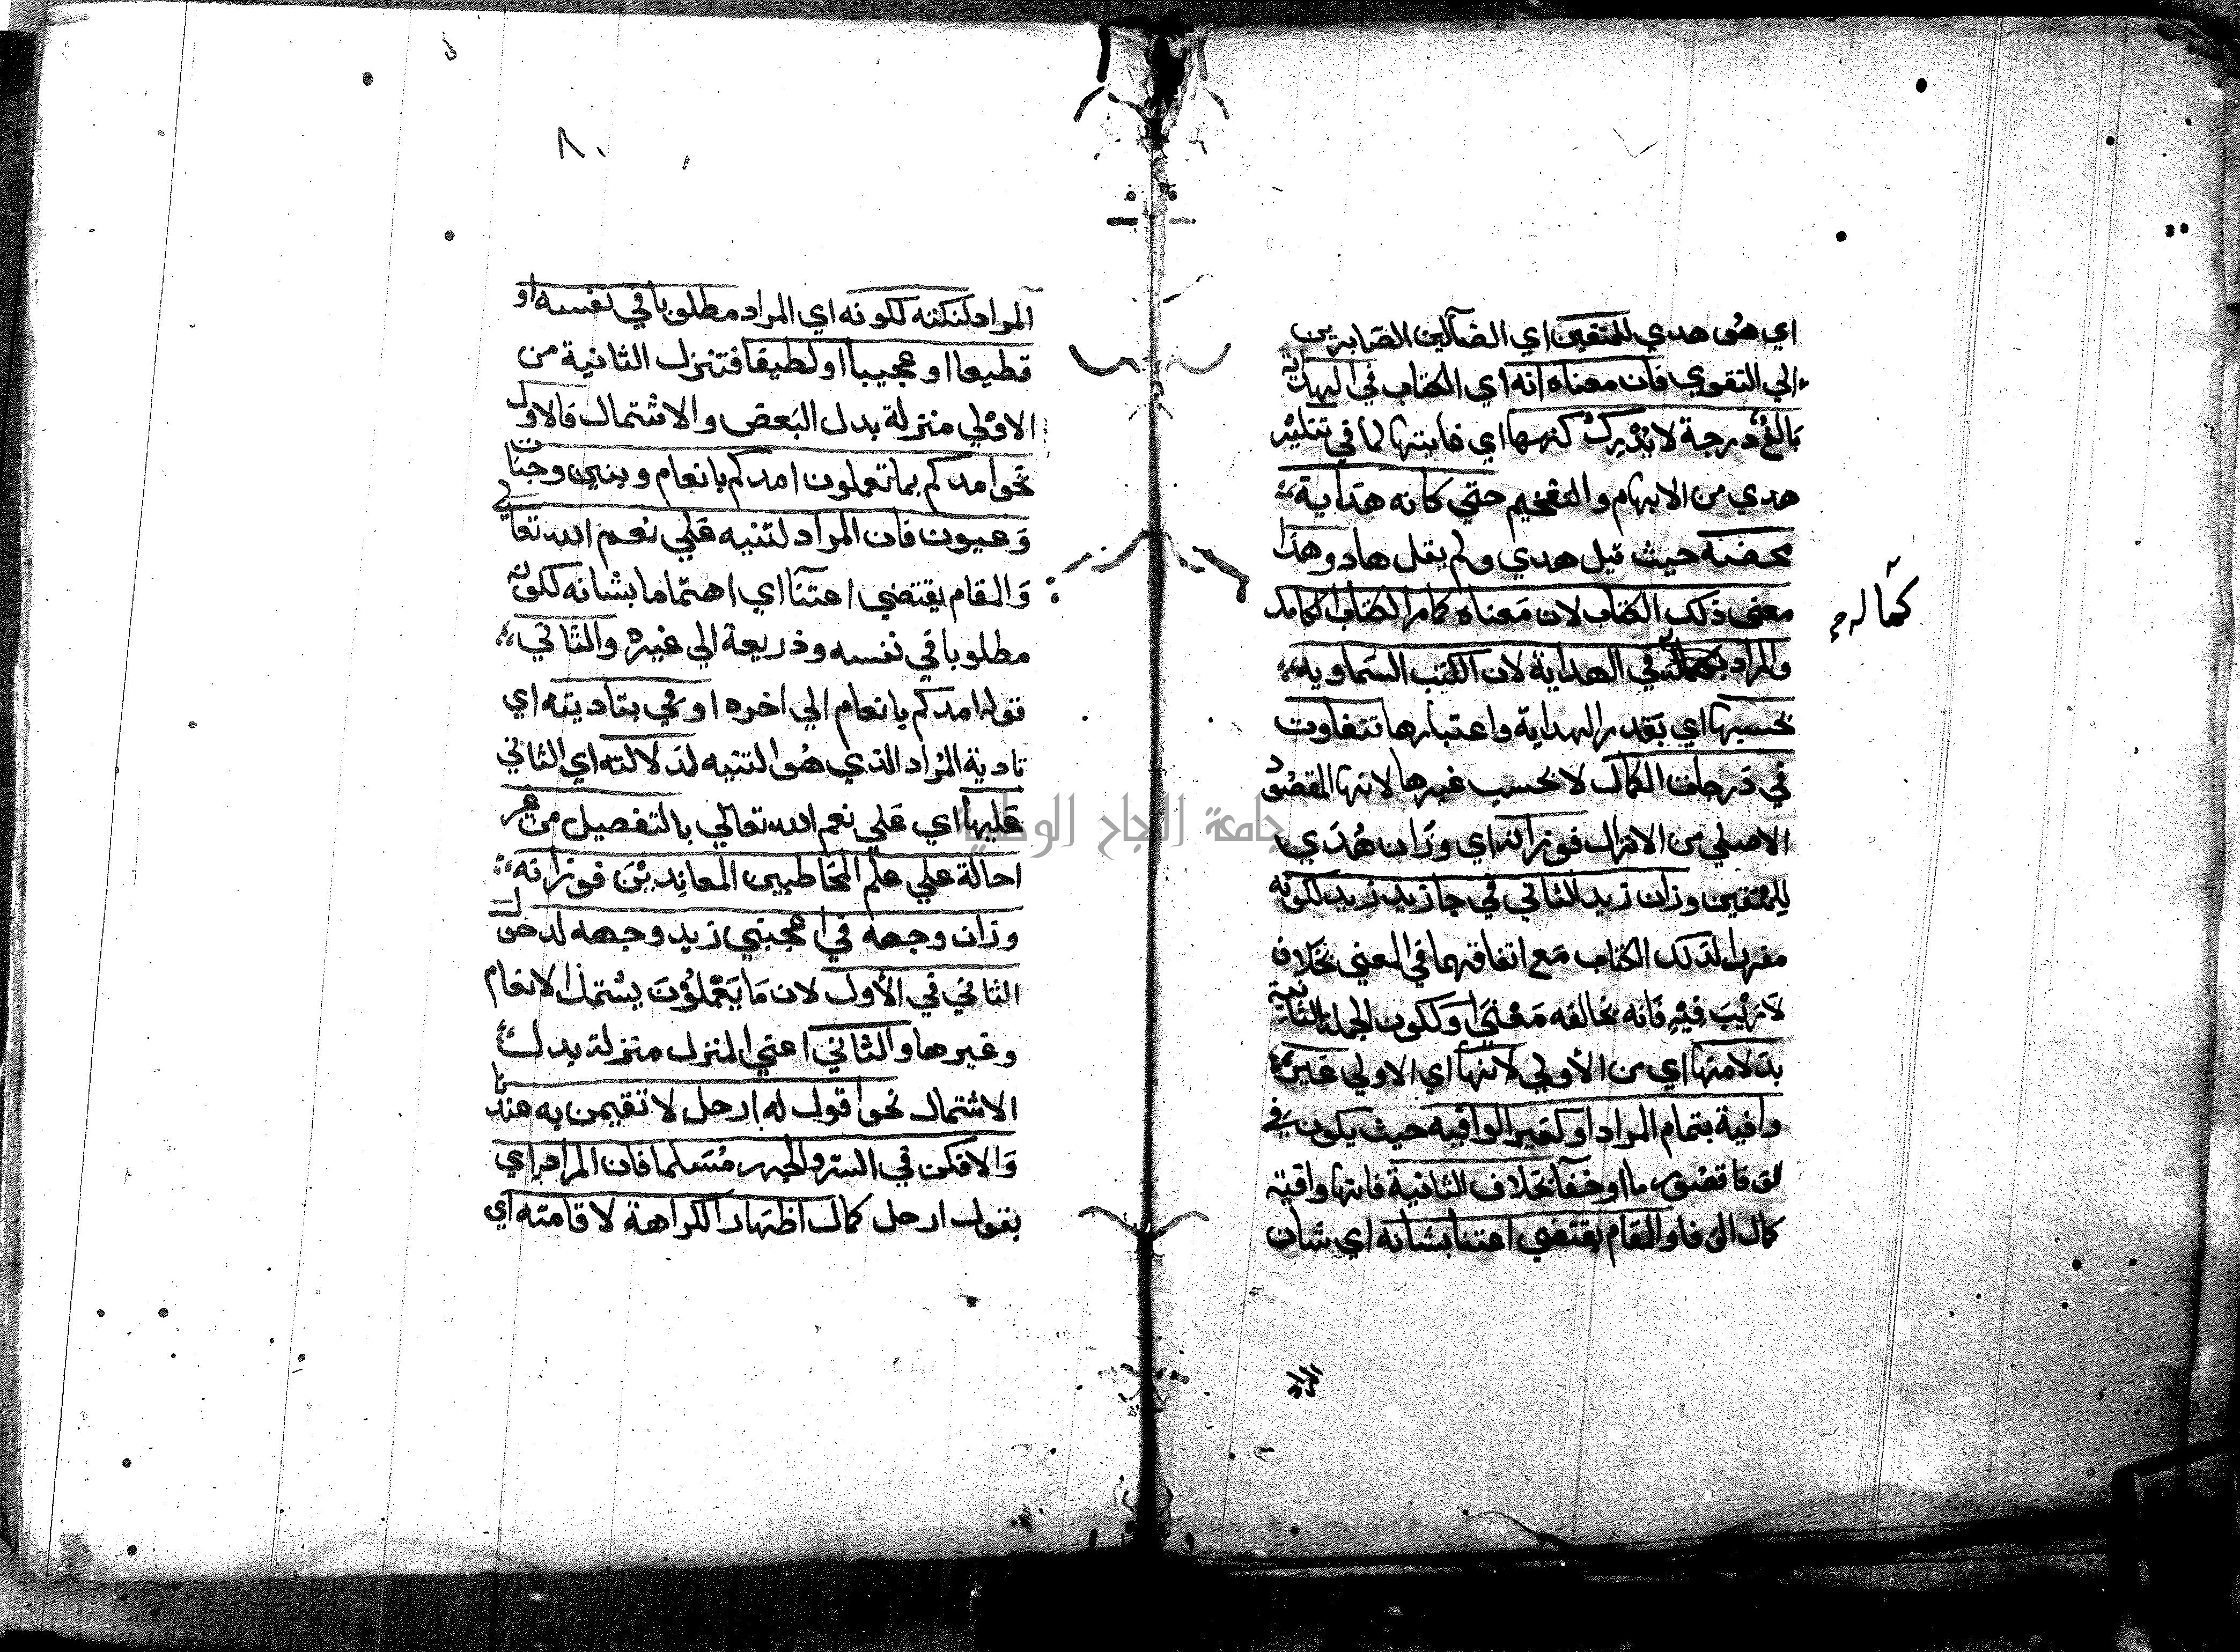 اي هو هدي للمتقين اي الضالين الصابرين
الي التقوي فان معناه انه اي الكتاب في الهداية
بالغ درجة لا يدرك كنهها اي غايتها لما في تنكير
هدي من الابهام والتفخيم حتي كانه هداية
محضة حيث قيل هدي ولم يقل هاد وهذا
معني ذلك الكتاب لان معناه كما مر الكتاب الكامل
والمراد بكماله في الهداية لان الكتب السماوية
كماله
بحسبها اي بقدر الهداية واعتبارها تتفاوت
في درجات الكمال لا بحسب غيرها لانها المقصود
الاصلي من الانزال فوزانه اي وزان هدي
للمتقين وزان زيد الثاني في جا زيد زيد لكونه
مقررا لذلك الكتاب مع اتفاقهما في المعني بخلاف
لا ريب فيه فانه يخالفه معني او لكون الجملة الثانية
بدلا منها اي من الاولي لانها اي الاولي غير
وافية بتمام المراد او كغير الوافيه حيث يكون في
الوفا قصور ما او خفا بخلاف الثانية فانها وافية
كمال الوفا والمقام يقتضي اعتنا بشانه اي بشان
المراد
٨٠
المراد لنكتة ككونه اي المراد مطلوبا في نفسه او
فظيعا او عجيبا او لطيفا فتنزل الثانية من
الاولي منزلة بدل البعض والاشتمال فالاول
نحو امدكم بما تعملون امدكم بانعام وبنين وجنات
وعيون فان المراد لتنبيه علي نعم الله تعالي
والمقام يقتضي اعتنا اي اهتماما بشانه لكونه
مطلوبا في نفسه وذريعة الي غيره والثاني
قوله امدكم بانعام الي اخره اوفي بتاديته اي
تادية المراد الذي هو التنبيه لدلالته اي الثاني
عليها اي علي نعم الله تعالي بالتفصيل من غير
احالة علي علم المخاطبين المعاندين فوزانه
وزان وجهه في اعجبني زيد وجهه لدخول
الثاني في الاول لان ما يعملون يشتمل الانعام
وغيرها والثاني اعني المنزل منزلة بدل
الاشتمال نحو اقول له ارحل لا تقيمن به عندنا
والا فكن في السر والجهر مسلما فان المراد اي
بقول ارحل كمال اظهار الكراهة لاقامته اي
جامعة النجاح الوطنية